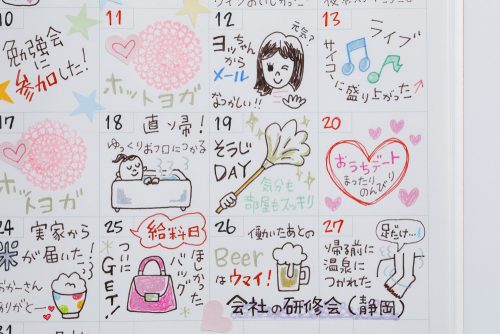 10
勉強会
に
参加した!
11
ホットヨガ
12
ヨッちゃん
から
メール
なつかしい!!
元気?
13
ライブ
サイコーに
盛り上がった
17
ホットヨガ
18
直り帰!
ゆっくりおフロにつかる
19
そうじ
DAY
気分も
部屋もスッキリ
20
おうちデート
まったり
のんびり
24
実家から
米が届いた!
おかーさん
ありがとー
25
給料日
ついに
GET!
ほしかった
バッグ
26
働いたあとの
Beer
はウマイ!
27
足だけ…
帰る前に
温泉に
つかれた
会社の研修会(静岡)
31